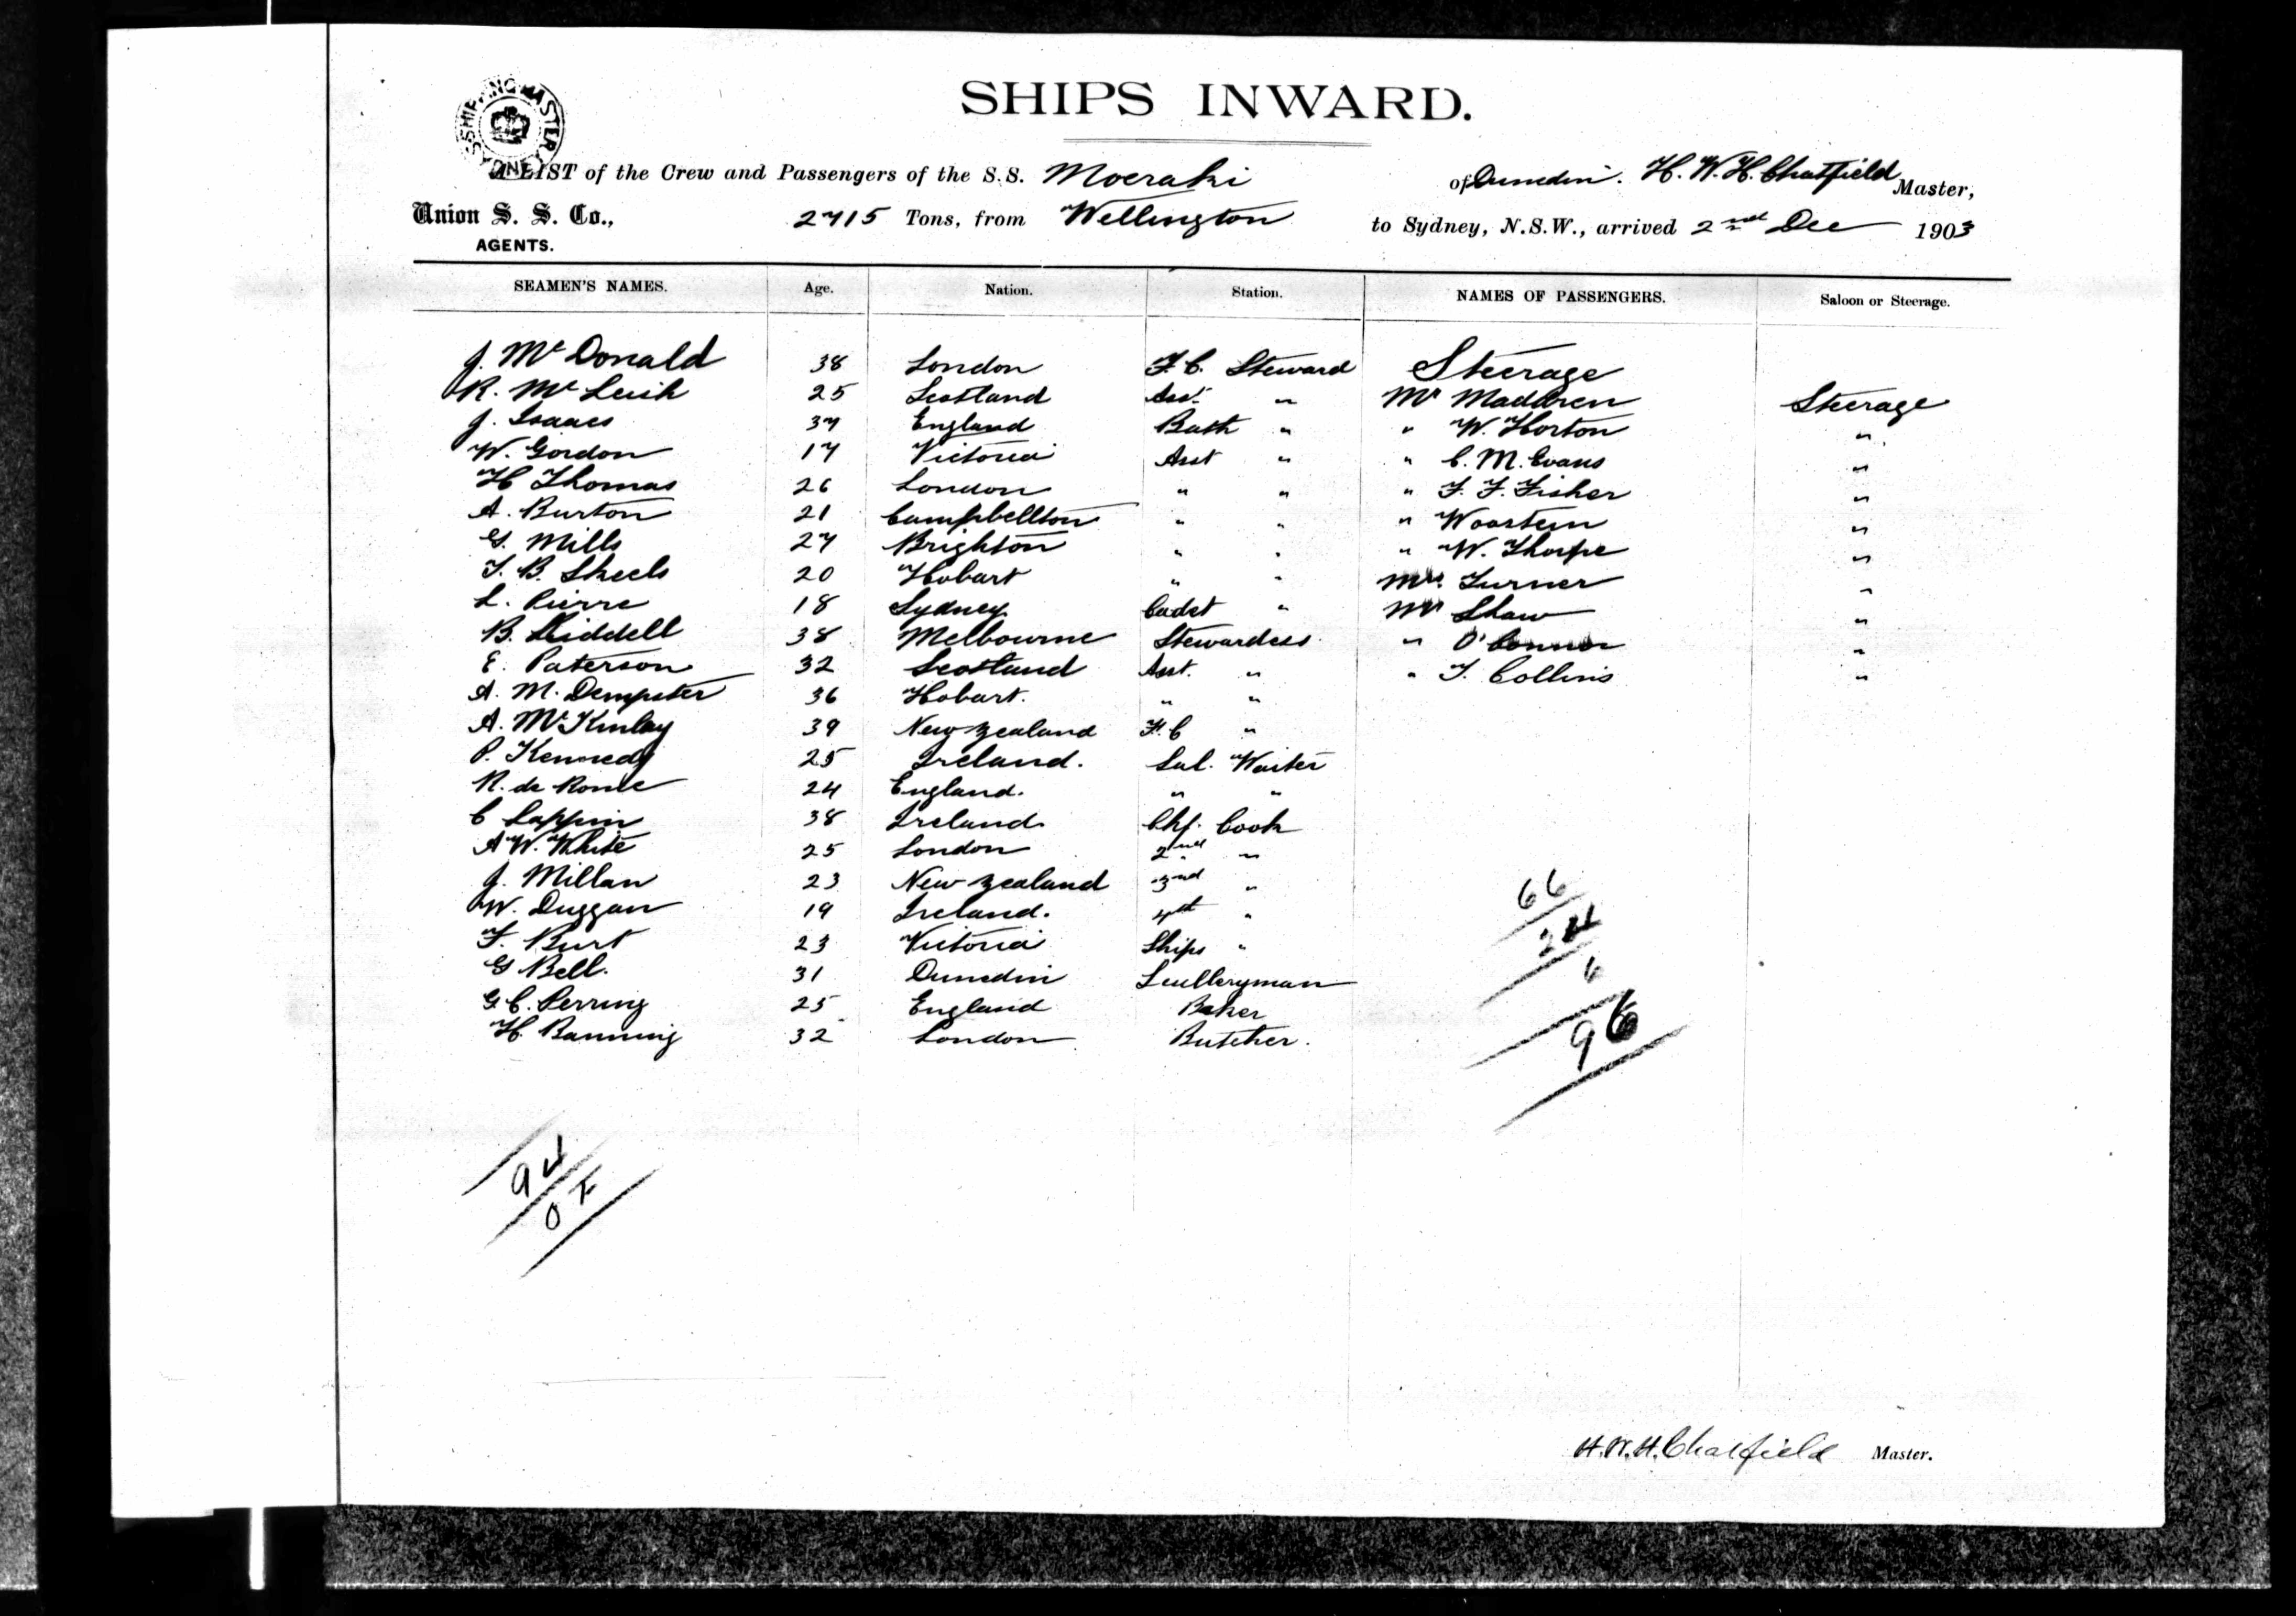 SHIPS INWARD.
SHIPPING MASTER
A LIST of the Crew and Passengers of the S.S. Moeraki of Dunedin. H. W. H. Chatfield Master,
Union S. S. Co., 2715 Tons, from Wellington to Sydney, N.S.W., arrived 2nd Dec 1903
AGENTS.
SEAMEN'S NAMES. Age. Nation. Station. NAMES OF PASSENGERS. Saloon or Steerage.
J. McDonald 38 London F.C. Steward Steerage
R. McLeish 25 Scotland Asst. " Mr Maddren Steerage
J. Isaacs 37 England Bath " " W. Horton "
W. Gordon 17 Victoria Asst " " C. M. Evans "
H Thomas 26 London " " " F. F. Fisher "
A. Burton 21 Campbellton " " "
G. Mills 27 Brighton " " " W. Thorpe "
T. B. Sheels 20 Hobart " " Mrs. Turner "
L. Pierre 18 Sydney Cadet " Mr Shaw "
B. Liddell 38 Melbourne Stewardess " O'Connor "
E. Paterson 32 Scotland Asst. " " T. Collins "
A. M. Dempster 36 Hobart. " "
A. McKinlay 39 New Zealand F.C "
P. Kennedy 25 Ireland. Sal. Waiter
R. de Rome 24 England. " "
C Lappin 38 Ireland Chf. Cook
A W. White 25 London 2nd "
J. Millan 23 New Zealand 3rd "
W. Duggan 19 Ireland. 4th "
F. Burt 23 Victoria Ships "
G Bell. 31 Dunedin Sculleryman
G C. Perring 25 England Baker
H. Banning 32 London Butcher.
66
24
6
96
94
OF
H. W. H. Chatfield Master.